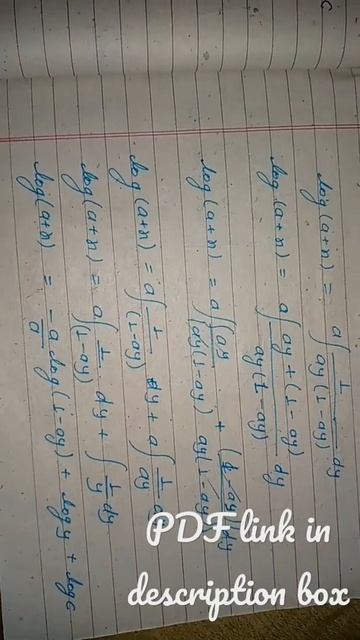 c
log(a+x) = a∫ 1/ay(1-ay) dy
log(a+x) = a∫ ay+(1-ay)/ay(1-ay) dy
log(a+x) = a∫ (ay/ay(1-ay) + (1-ay)/ay(1-ay)) dy
log(a+x) = a∫ 1/(1-ay) dy + a∫ 1/ay
log(a+x) = a∫ 1/(1-ay) dy + ∫ 1/y dy
log(a+x) = -a/a log(1-ay) + log y + log c
PDF link in
description box